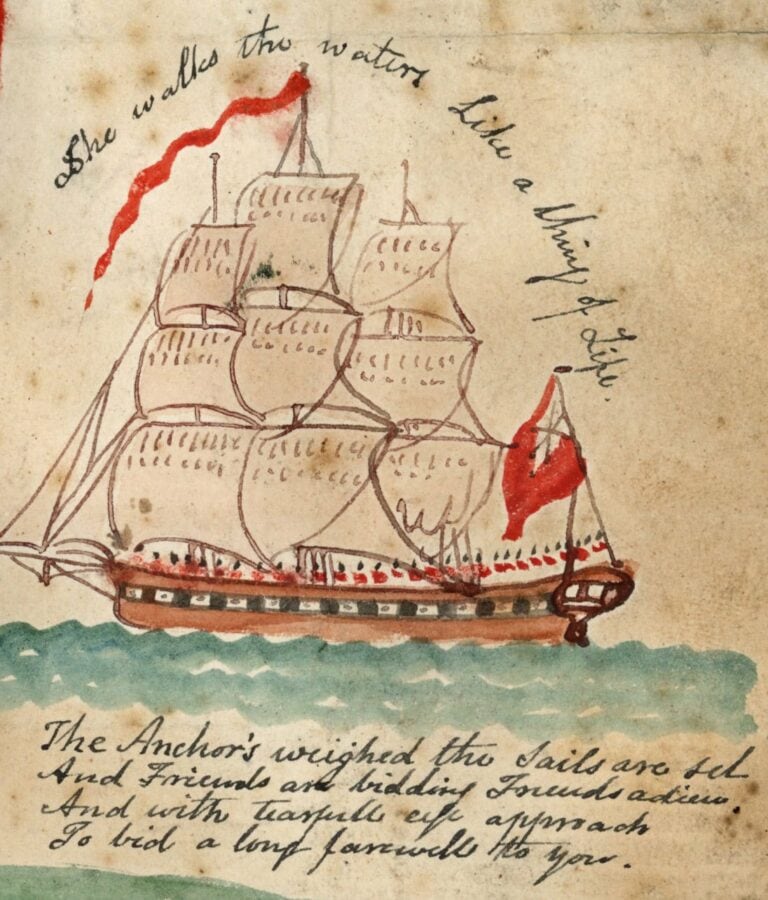 She walks the waters Like a thing of Life.
The Anchor's weighed the Sails are set
And Friends are bidding Friends adieu.
And with tearfull eye approach
To bid a long farewell to you.